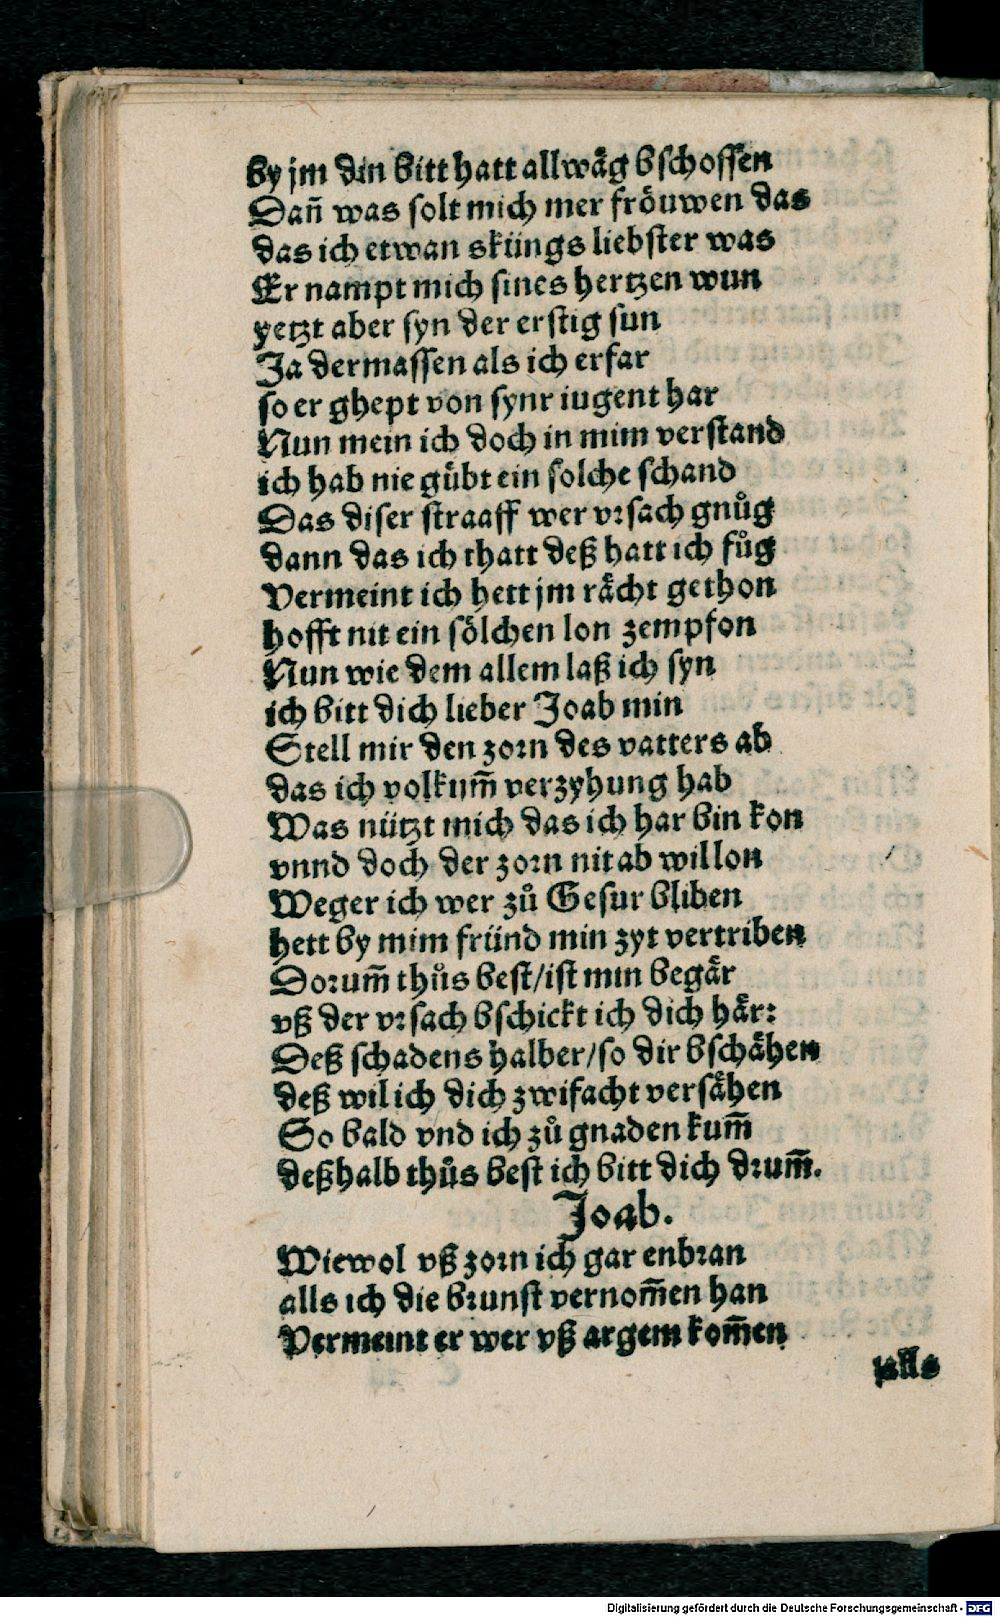 by jm din bitt hatt allwåg bschossen
Dañ was solt mich mer fröuwen das
das ich etwan sküngs liebster was
Er nampt mich sines hertzen wun
yetzt aber syn der erstig sun
Ja dermassen als ich erfar
so er ghept von synr iugent har
Nun mein ich doch in mim verstand
ich hab nie gübt ein solche schand
Das diser straaff wer vrsach gnůg
dann das ich thatt deß hatt ich fůg
Vermeint ich hett jm rächt gethon
hofft nit ein sölchen lon zempfon
Nun wie dem allem laß ich syn
ich bitt dich lieber Joab min
Stell mir den zorn des vatters ab
das ich volkum̃ verzyhung hab
Was nützt mich das ich har bin kon
vnnd doch der zorn nit ab wil lon
Weger ich wer zů Gesur bliben
hett by mim fründ min zyt vertriben
Dorum̃ thůs best/ist min begär
vß der vrsach bschickt ich dich här:
Deß schadens halber/so dir bschähen
deß wil ich dich zwifacht versähen
So bald vnd ich zů gnaden kum̃
deßhalb thůs best ich bitt dich drum̃.
Joab.
Wiewol vß zorn ich gar enbran
alls ich die brunst vernom̃en han
Vermeint er wer vß argem kom̃en
alls
Digitalisierung gefördert durch die Deutsche Forschungsgemeinschaft - DFG